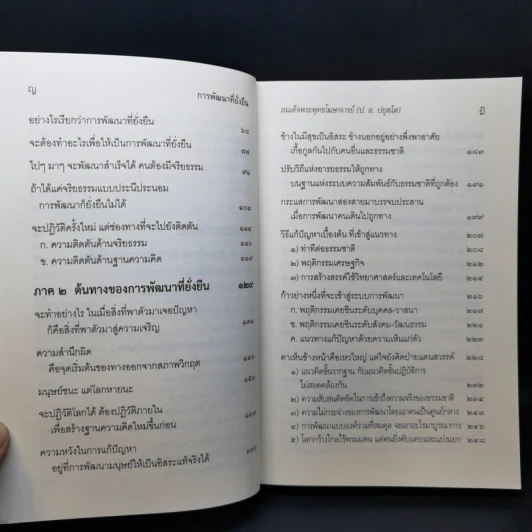 ญ
การพัฒนาที่ยั่งยืน
อย่างไรเรียกว่าการพัฒนาที่ยั่งยืน ๖๘
จะต้องทำอะไรเพื่อให้เป็นการพัฒนาที่ยั่งยืน ๗๗
ไปๆ มาๆ จะพัฒนาสำเร็จได้ คนต้องมีจริยธรรม ๙๑
ถ้าได้แค่จริยธรรมแบบประนีประนอม
การพัฒนาก็ยั่งยืนไม่ได้ ๑๐๑
จะปฏิวัติครั้งใหม่ แต่ช่องทางที่จะไปยังติดตัน ๑๑๕
ก. ความติดตันด้านจริยธรรม ๑๑๖
ข. ความติดตันด้านฐานความคิด ๑๑๙
ภาค ๒ ต้นทางของการพัฒนาที่ยั่งยืน ๑๒๙
จะทำอย่างไร ในเมื่อสิ่งที่พาตัวมาเจอปัญหา
ก็คือสิ่งที่พาตัวมาสู่ความเจริญ
ความสำนึกผิด
คือจุดเริ่มต้นของทางออกจากสภาพวิกฤต
มนุษย์ชนะ แต่โลกหายนะ
จะปฏิวัติโลกได้ ต้องปฏิวัติภายใน
เพื่อสร้างฐานความคิดใหม่ขึ้นก่อน
ความหวังในการแก้ปัญหา
อยู่ที่การพัฒนามนุษย์ให้เป็นอิสระแท้จริงได้
สมเด็จพระพุทธโฆษาจารย์ (ป. อ. ปยุตฺโต)
ฎ
ข้างในมีสุขเป็นอิสระ ข้างนอกอยู่อย่างพึ่งพาอาศัย
เกื้อกูลกันไปกับคนอื่นและธรรมชาติ ๑๘๓
ปรับวิถีแห่งอารยธรรมให้ถูกทาง
บนฐานแห่งระบบความสัมพันธ์กับธรรมชาติที่ถูกต้อง ๑๙๑
กระแสการพัฒนาสองสายมาบรรจบประสาน
เมื่อการพัฒนาคนเดินไปถูกทาง ๑๙๙
วิธีแก้ปัญหาเบื้องต้น ที่เข้าสู่แนวทาง ๒๐๘
๑) ท่าทีต่อธรรมชาติ ๒๐๘
๒) พฤติกรรมเศรษฐกิจ
๓) การสร้างสรรค์ใช้วิทยาศาสตร์และเทคโนโลยี ๒๑๔
ก้าวอย่างหนึ่งที่จะเข้าสู่ระบบการพัฒนา ๒๑๖
ก. พฤติกรรมเคยชินระดับบุคคล-วาสนา
ข. พฤติกรรมเคยชินระดับสังคม-วัฒนธรรม
ค. แนวทางแก้ปัญหาด้วยความเห็นแก่ตัว ๒๒๖
ตาเห็นข้างหน้าคือเหวใหญ่ แต่ใจยังคิดป่ายแดนสวรรค์
๑) แนวคิดขั้นรากฐาน กับแนวคิดขั้นปฏิบัติการ
ไม่สอดคล้องกัน
๒) ความสับสนติดขัดในการเข้าถึงความจริงของธรรมชาติ
๓) ความไม่กระจ่างของการพัฒนาโดยเอาคนเป็นศูนย์กลาง
๔) การพัฒนาแบบองค์รวมที่สมดุล จะเอาอะไรมาบูรณาการ
๕) โลกกว้างไกลไร้พรมแดน แต่คนยิ่งคับแคบและแบ่งแยก ๒๔๘